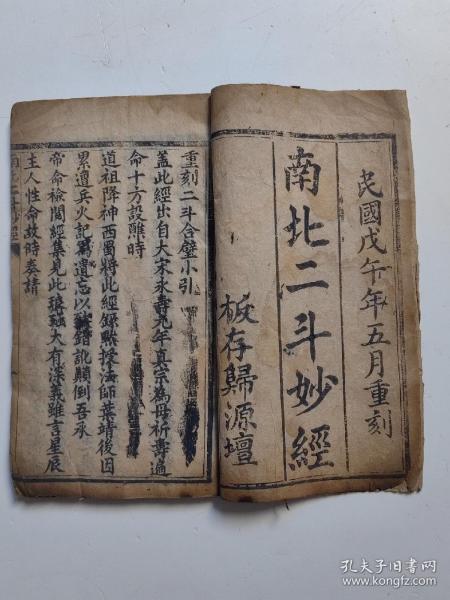 民國戊午年五月重刻
南北二斗妙經
板存歸源壇
重刻二斗合璧小引
蓋此經出自大宋永壽元年真宗為母祈壽遍
命十方設醮時
道祖降神西蜀將此經錄默授法師葉靖後因
累遭兵火記寫遺忘以致錯訛顛倒吾承
帝命檢閱經集見此
大有深義雖言星辰
主人性命故時奏請
南北二斗妙經
孔夫子旧书网
www.kongfz.com